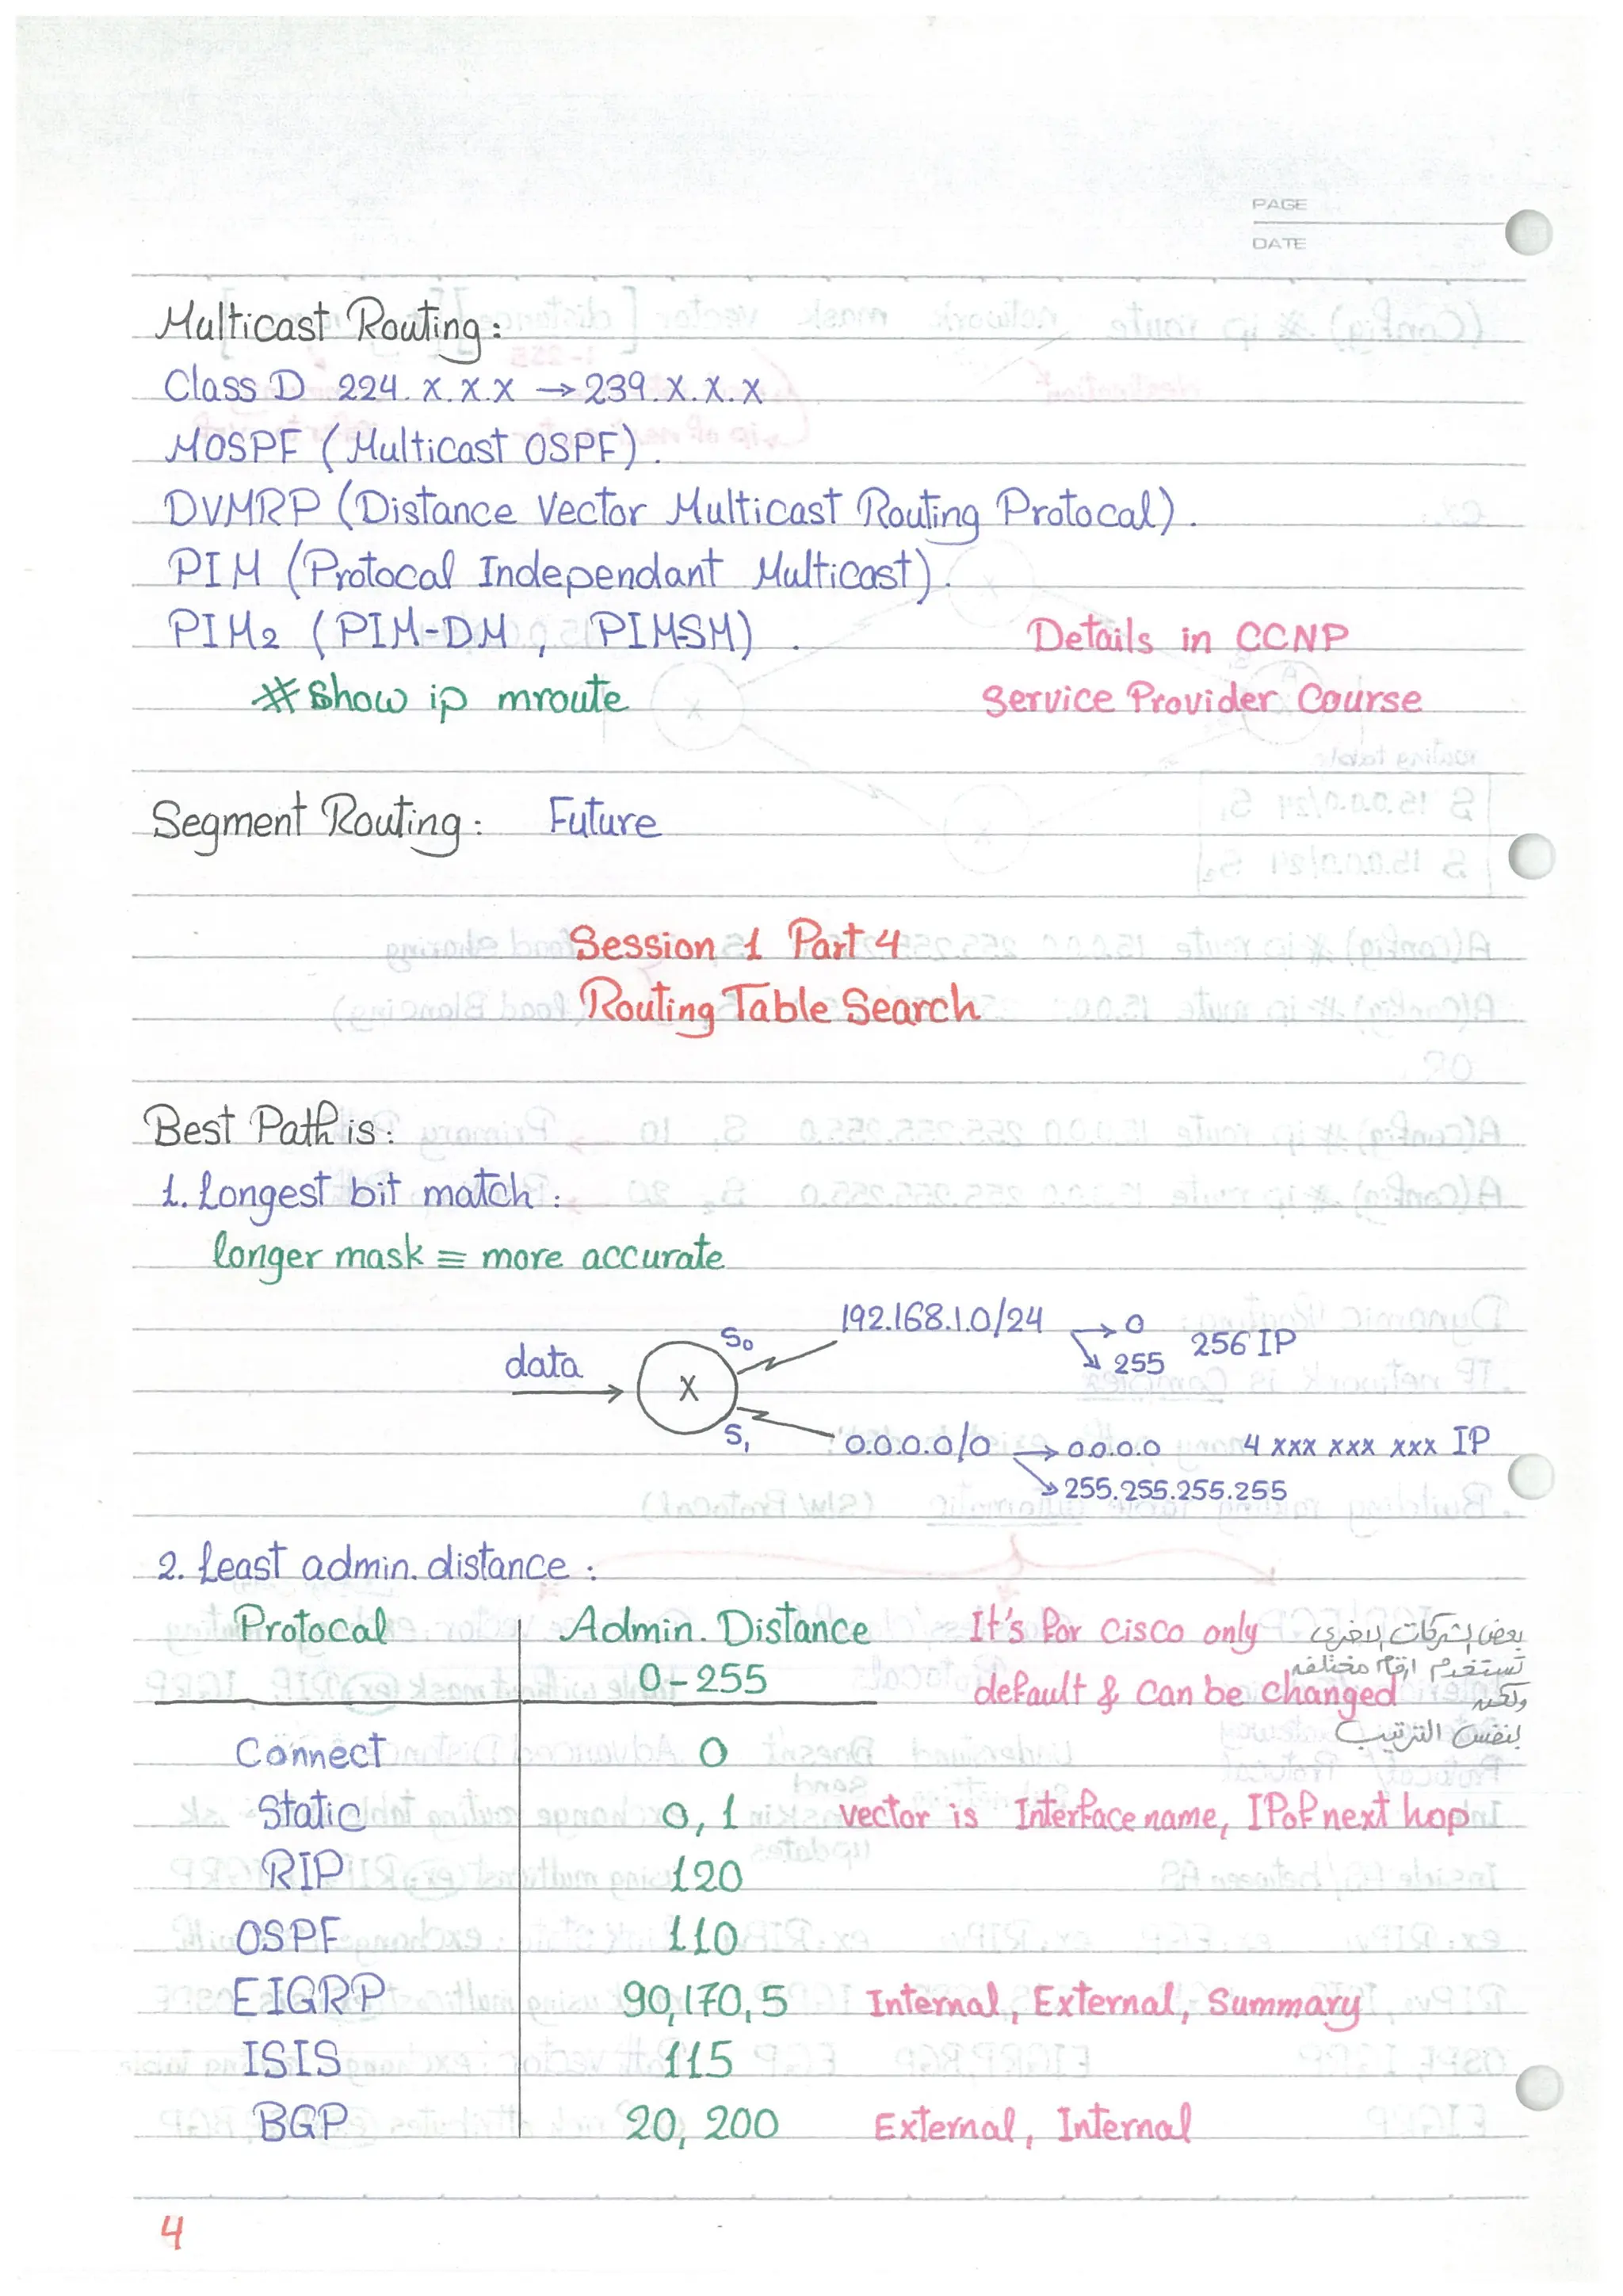 PAGE
DATE
Multicast Routing:
Class D 224.x.x.x → 239.x.x.x
MOSPF (Multicast OSPF).
DVMRP (Distance Vector Multicast Routing Protocal).
PIM (Protocal Independant Multicast).
PIM2 (PIM-DM, PIMSM).
Details in CCNP
# Show ip mroute
Service Provider Course
Segment Routing: Future
Session 1 Part 4
Routing Table Search
Best Path is:
1. Longest bit match:
longer mask ≡ more accurate
192.168.1.0/24 → 0 256 IP
↘ 255
S0
data
X
S1
0.0.0.0/0 → 0.0.0.0 4 xxx xxx xxx IP
↘ 255.255.255.255
2. Least admin. distance:
Protocal Admin. Distance It's for Cisco only بعض الشركات الاخرى
0-255 default & can be changed تستخدم ارقام مختلفه
ولكنه
بنفس الترتيب
Connect 0
Static 0, 1 vector is Interface name, IP of next hop
RIP 120
OSPF 110
EIGRP 90, 170, 5 Internal, External, Summary
ISIS 115
BGP 20, 200 External, Internal
4